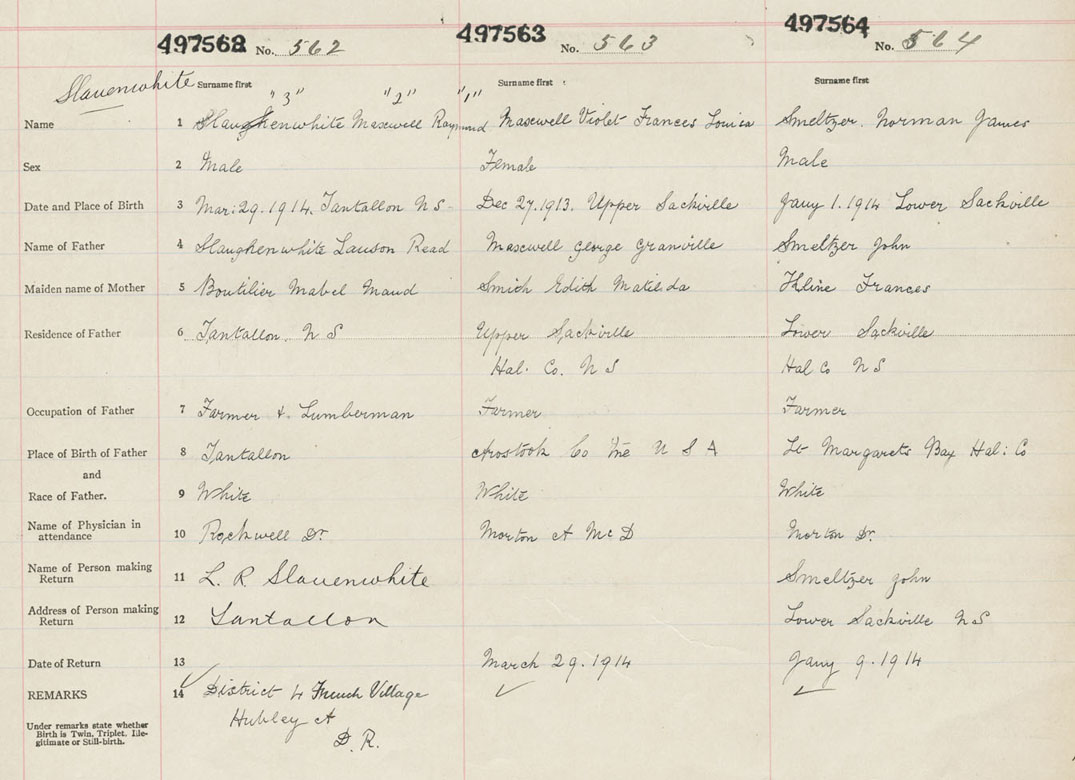 497562 No. 562 497563 No. 563 497564 No. 564
Slauenwhite Surname first Surname first Surname first
"3" "2" "1"
Name 1 Slaughenwhite Maxwell Raymond Maxwell Violet Frances Louisa Smeltzer. Norman James
Sex 2 Male Female Male
Date and Place of Birth 3 Mar. 29. 1914. Tantallon N S Dec 27. 1913. Upper Sackville Jany 1. 1914 Lower Sackville
Name of Father 4 Slaughenwhite Lawson Read Maxwell George Granville Smeltzer John
Maiden name of Mother 5 Boutilier Mabel Maud Smith Edith Matilda Kline Frances
Residence of Father 6 Tantallon. N S Upper Sackville Lower Sackville
Hal. Co. N S Hal Co N S
Occupation of Father 7 Farmer & Lumberman Farmer Farmer
Place of Birth of Father 8 Tantallon Arostook Co Me U S A St Margarets Bay Hal: Co
and
Race of Father. 9 White White White
Name of Physician in
attendance 10 Rockwell Dr. Morton A McD Morton Dr.
Name of Person making
Return 11 L. R Slauenwhite Smeltzer John
Address of Person making
Return 12 Tantallon Lower Sackville N S
Date of Return 13 March 29. 1914 Jany 9. 1914
REMARKS 14 District 4 French Village
Under remarks state whether
Birth is Twin, Triplet, Ille-
gitimate or Still-birth.
Hubley A
D. R.